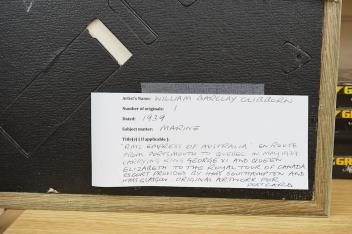 Artist's Name: WILLIAM BARCLAY CLIBBORN
Number of originals: 1
Dated: 1939
Subject matter: MARINE
Title(s) (if applicable):
"RMS EMPRESS OF AUSTRALIA" EN ROUTE
FROM PORTSMOUTH TO QUEBEC IN MAY 1939
CARRYING KING GEORGE VI AND QUEEN
ELIZABETH TO THE ROYAL TOUR OF CANADA
ESCORT PROVIDED BY HMS SOUTHAMPTON AND
HMS GLASGOW. ORIGINAL ARTWORK FOR
POSTCARD
GR